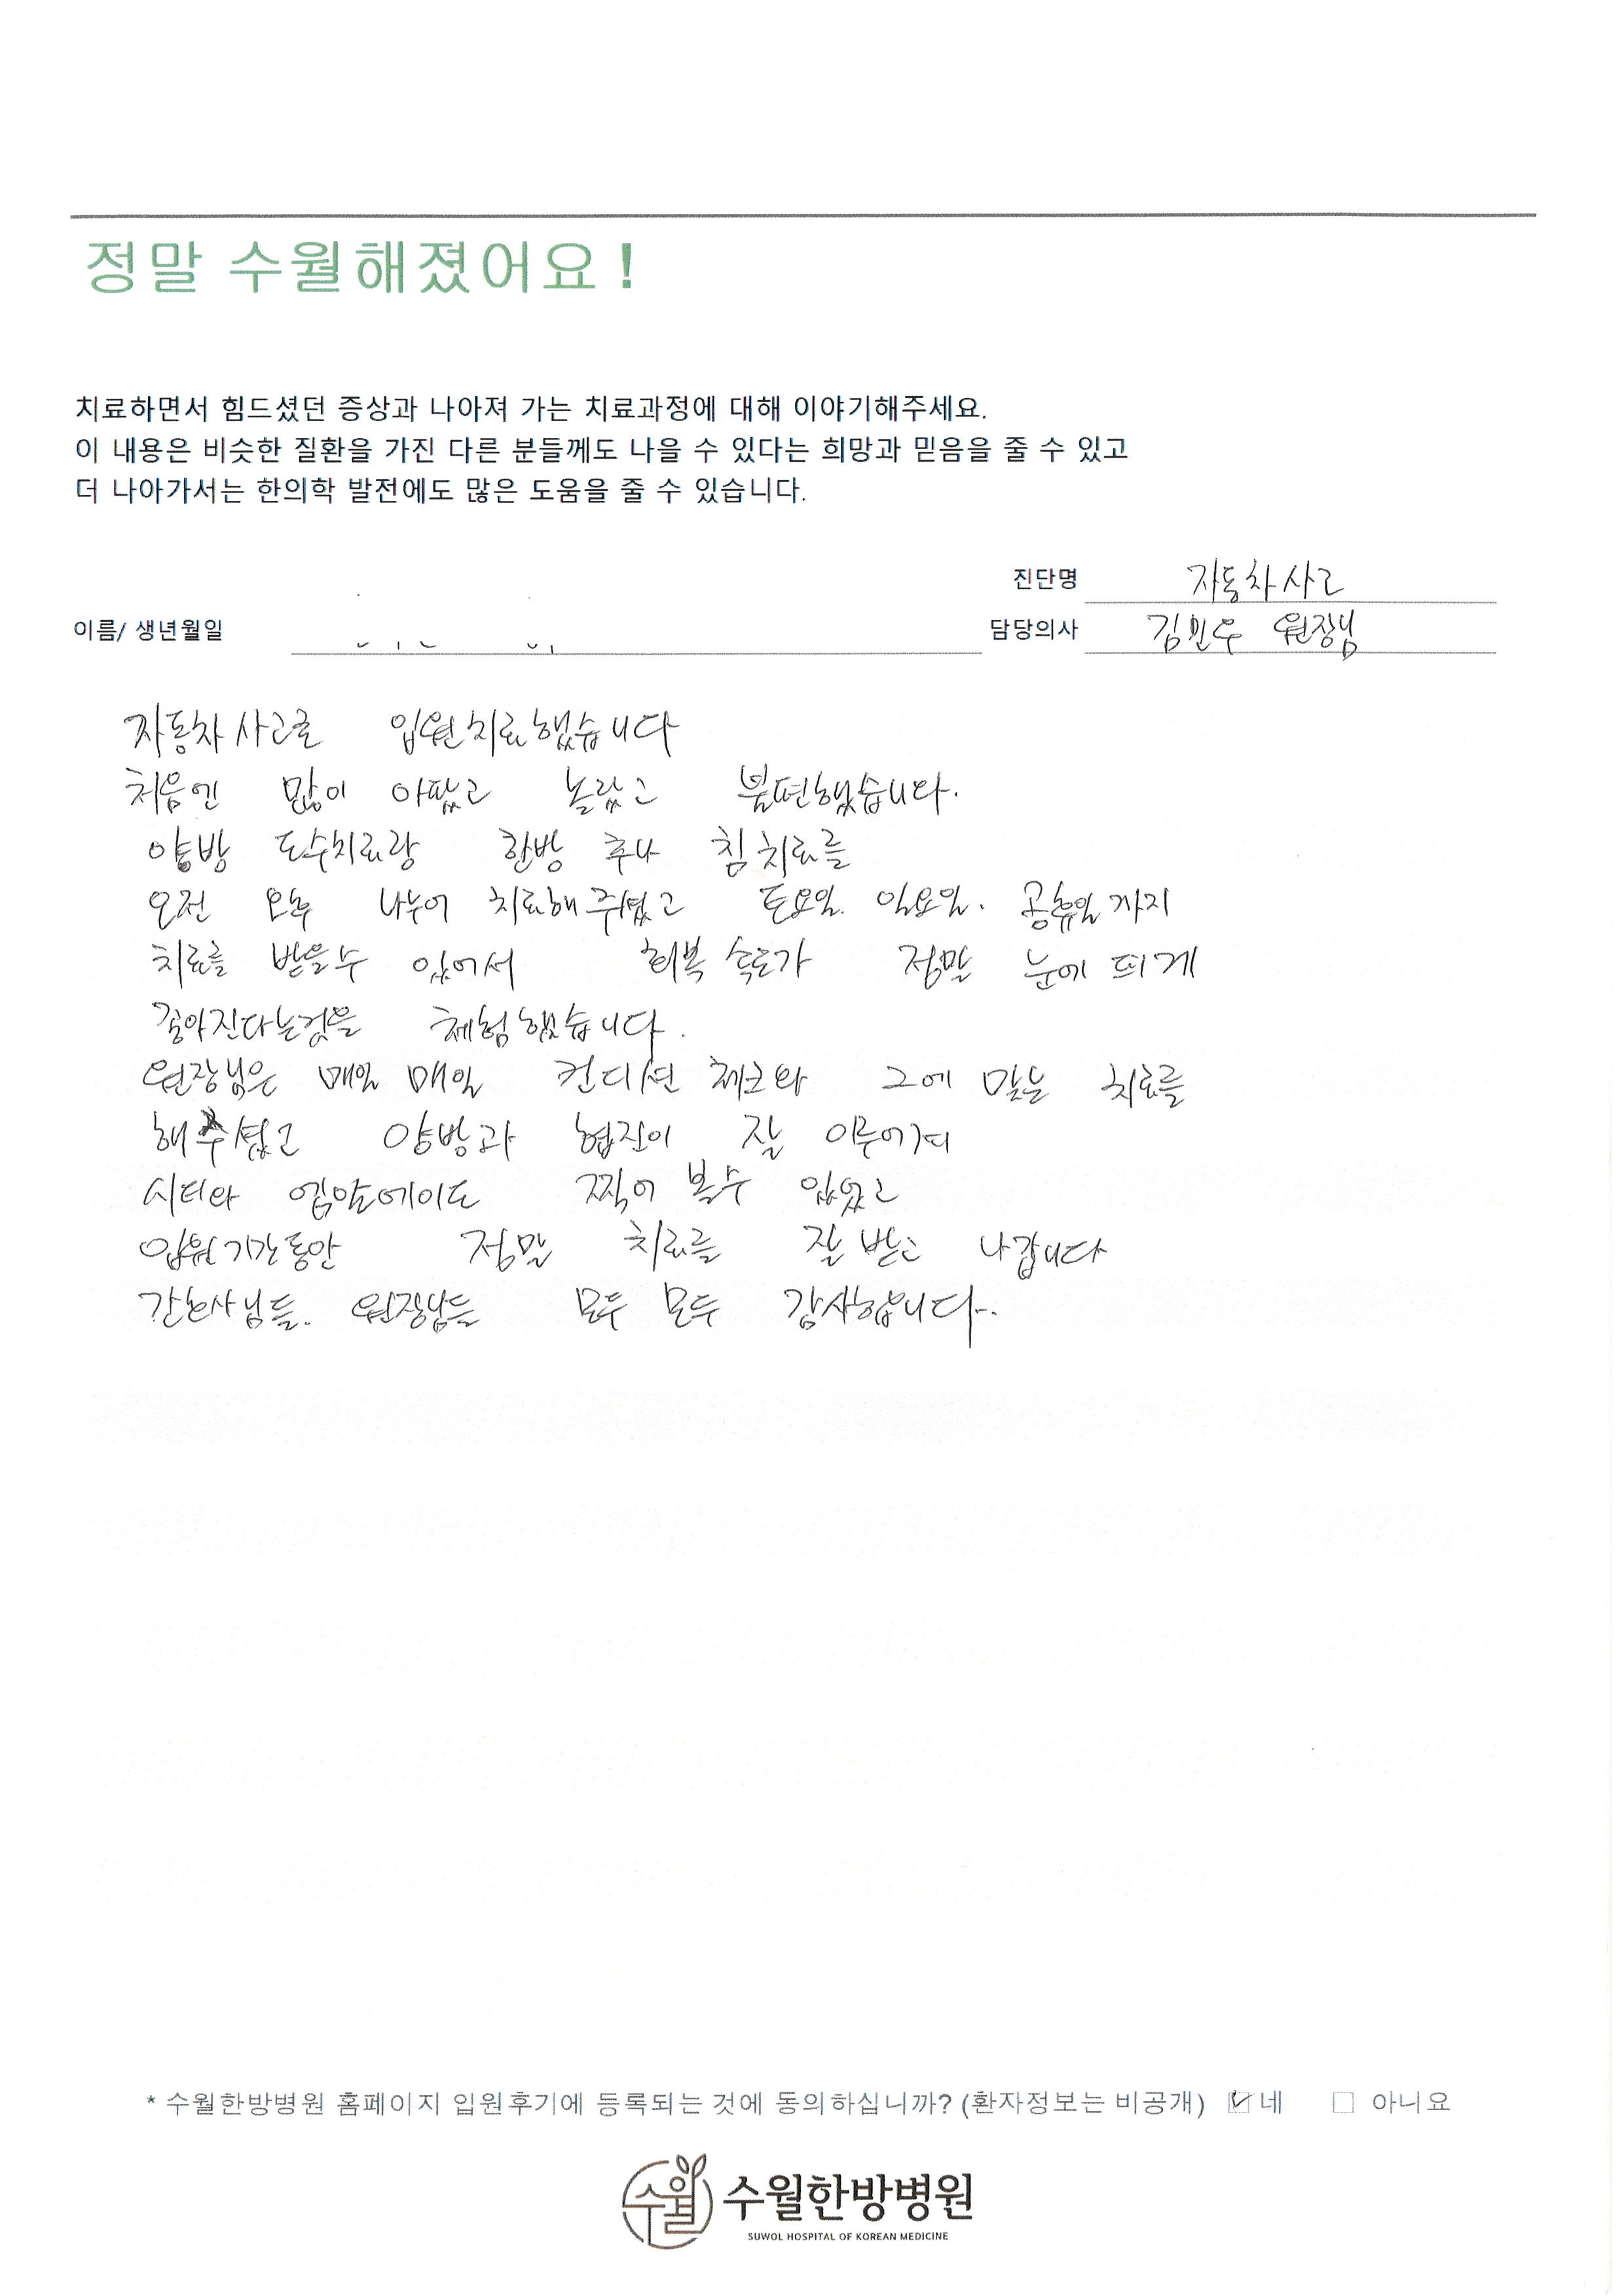 정말 수월해졌어요!
치료하면서 힘드셨던 증상과 나아져 가는 치료과정에 대해 이야기해주세요.
이 내용은 비슷한 질환을 가진 다른 분들께도 나을 수 있다는 희망과 믿음을 줄 수 있고
더 나아가서는 한의학 발전에도 많은 도움을 줄 수 있습니다.
진단명 자동차사고
이름/ 생년월일 담당의사 김민우 원장님
자동차 사고로 입원치료했습니다
처음엔 많이 아팠고 놀랐고 불편했습니다.
양방 도수치료랑 한방 추나 침치료를
오전 오후 나누어 치료해주셨고 토요일. 일요일. 공휴일까지
치료를 받을수 있어서 회복 속도가 정말 눈에 띄게
좋아진다는것을 체험했습니다.
원장님은 매일 매일 컨디션 체크와 그에 맞는 치료를
해주셨고 양방과 협진이 잘 이루어져
시티와 엠알에이도 찍어 볼수 있었고
입원기간동안 정말 치료를 잘 받고 나갑니다
간호사님들. 원장님들 모두 모두 감사합니다.
* 수월한방병원 홈페이지 입원후기에 등록되는 것에 동의하십니까? (환자정보는 비공개) ☑ 네 ☐ 아니요
수월 수월한방병원
SUWOL HOSPITAL OF KOREAN MEDICINE